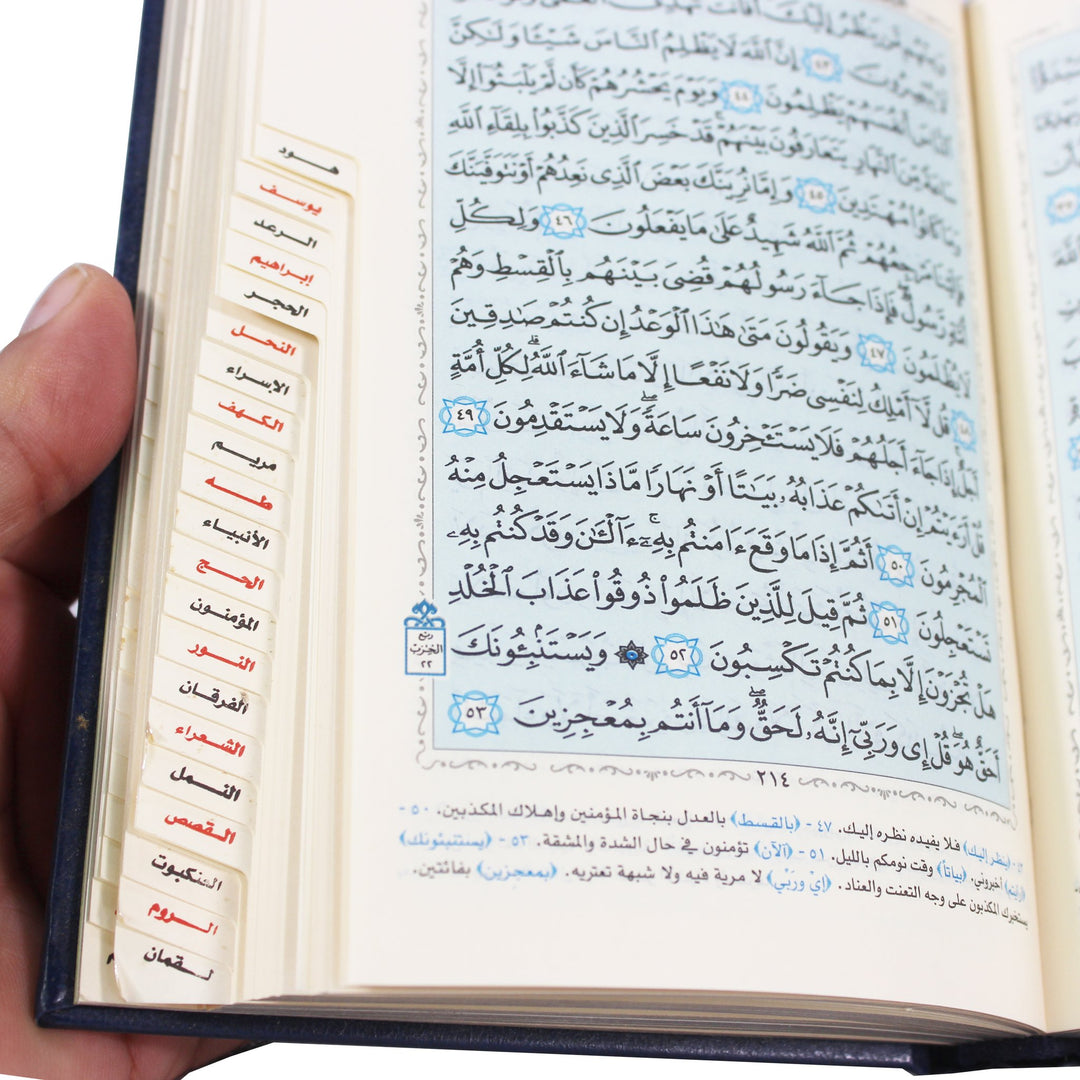 لَا يُبْصِرُونَ ٤٣ إِنَّ ٱللَّهَ لَا يَظْلِمُ ٱلنَّاسَ شَيْـًٔا وَلَـٰكِنَّ
ٱلنَّاسَ أَنفُسَهُمْ يَظْلِمُونَ ٤٤ وَيَوْمَ يَحْشُرُهُمْ كَأَن لَّمْ يَلْبَثُوٓا۟ إِلَّا
سَاعَةً مِّنَ ٱلنَّهَارِ يَتَعَارَفُونَ بَيْنَهُمْ ۚ قَدْ خَسِرَ ٱلَّذِينَ كَذَّبُوا۟ بِلِقَآءِ ٱللَّهِ
وَمَا كَانُوا۟ مُهْتَدِينَ ٤٥ وَإِمَّا نُرِيَنَّكَ بَعْضَ ٱلَّذِى نَعِدُهُمْ أَوْ نَتَوَفَّيَنَّكَ
فَإِلَيْنَا مَرْجِعُهُمْ ثُمَّ ٱللَّهُ شَهِيدٌ عَلَىٰ مَا يَفْعَلُونَ ٤٦ وَلِكُلِّ
أُمَّةٍ رَّسُولٌ ۖ فَإِذَا جَآءَ رَسُولُهُمْ قُضِىَ بَيْنَهُم بِٱلْقِسْطِ وَهُمْ
لَا يُظْلَمُونَ ٤٧ وَيَقُولُونَ مَتَىٰ هَـٰذَا ٱلْوَعْدُ إِن كُنتُمْ صَـٰدِقِينَ
٤٨ قُل لَّآ أَمْلِكُ لِنَفْسِى ضَرًّا وَلَا نَفْعًا إِلَّا مَا شَآءَ ٱللَّهُ ۗ لِكُلِّ أُمَّةٍ
أَجَلٌ ۚ إِذَا جَآءَ أَجَلُهُمْ فَلَا يَسْتَـْٔخِرُونَ سَاعَةً ۖ وَلَا يَسْتَقْدِمُونَ ٤٩
قُلْ أَرَءَيْتُمْ إِنْ أَتَىٰكُمْ عَذَابُهُۥ بَيَـٰتًا أَوْ نَهَارًا مَّاذَا يَسْتَعْجِلُ مِنْهُ
ٱلْمُجْرِمُونَ ٥٠ أَثُمَّ إِذَا مَا وَقَعَ ءَامَنتُم بِهِۦٓ ۚ ءَآلْـَٔـٰنَ وَقَدْ كُنتُم بِهِۦ
تَسْتَعْجِلُونَ ٥١ ثُمَّ قِيلَ لِلَّذِينَ ظَلَمُوا۟ ذُوقُوا۟ عَذَابَ ٱلْخُلْدِ
هَلْ تُجْزَوْنَ إِلَّا بِمَا كُنتُمْ تَكْسِبُونَ ٥٢ ۞ وَيَسْتَنۢبِـُٔونَكَ
أَحَقٌّ هُوَ ۖ قُلْ إِى وَرَبِّىٓ إِنَّهُۥ لَحَقٌّ ۖ وَمَآ أَنتُم بِمُعْجِزِينَ ٥٣
ربع
الحزب
٢٢
٢١٤
﴿ينظر إليك﴾ فلا يفيده نظره إليك. ٤٧ - ﴿بالقسط﴾ بالعدل بنجاة المؤمنين وإهلاك المكذبين. ٥٠ -
﴿أرأيتم﴾ أخبروني. ﴿بياتاً﴾ وقت نومكم بالليل. ٥١ - ﴿آلآن﴾ تؤمنون في حال الشدة والمشقة. ٥٣ - ﴿يستنبئونك﴾
يستخبرك المكذبون على وجه التعنت والعناد. ﴿إي وربي﴾ لا مرية فيه ولا شبهة تعتريه. ﴿بمعجزين﴾ بفائتين.
هود
يوسف
الرعد
إبراهيم
الحجر
النحل
الإسراء
الكهف
مريم
طه
الأنبياء
الحج
المؤمنون
النور
الفرقان
الشعراء
النمل
القصص
العنكبوت
الروم
لقمان